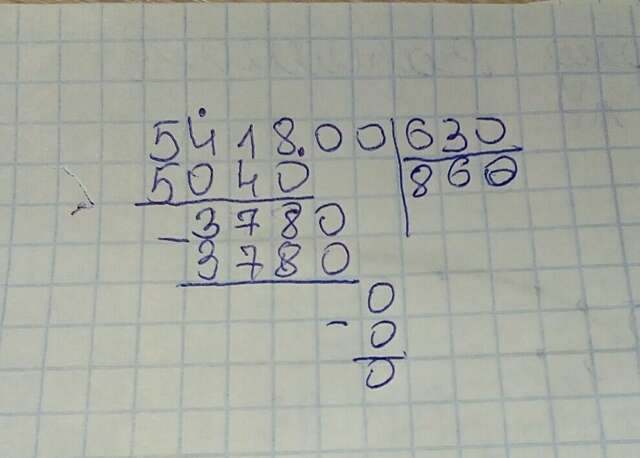 541800 630
5040 860
-3780
3780
0
-0
0